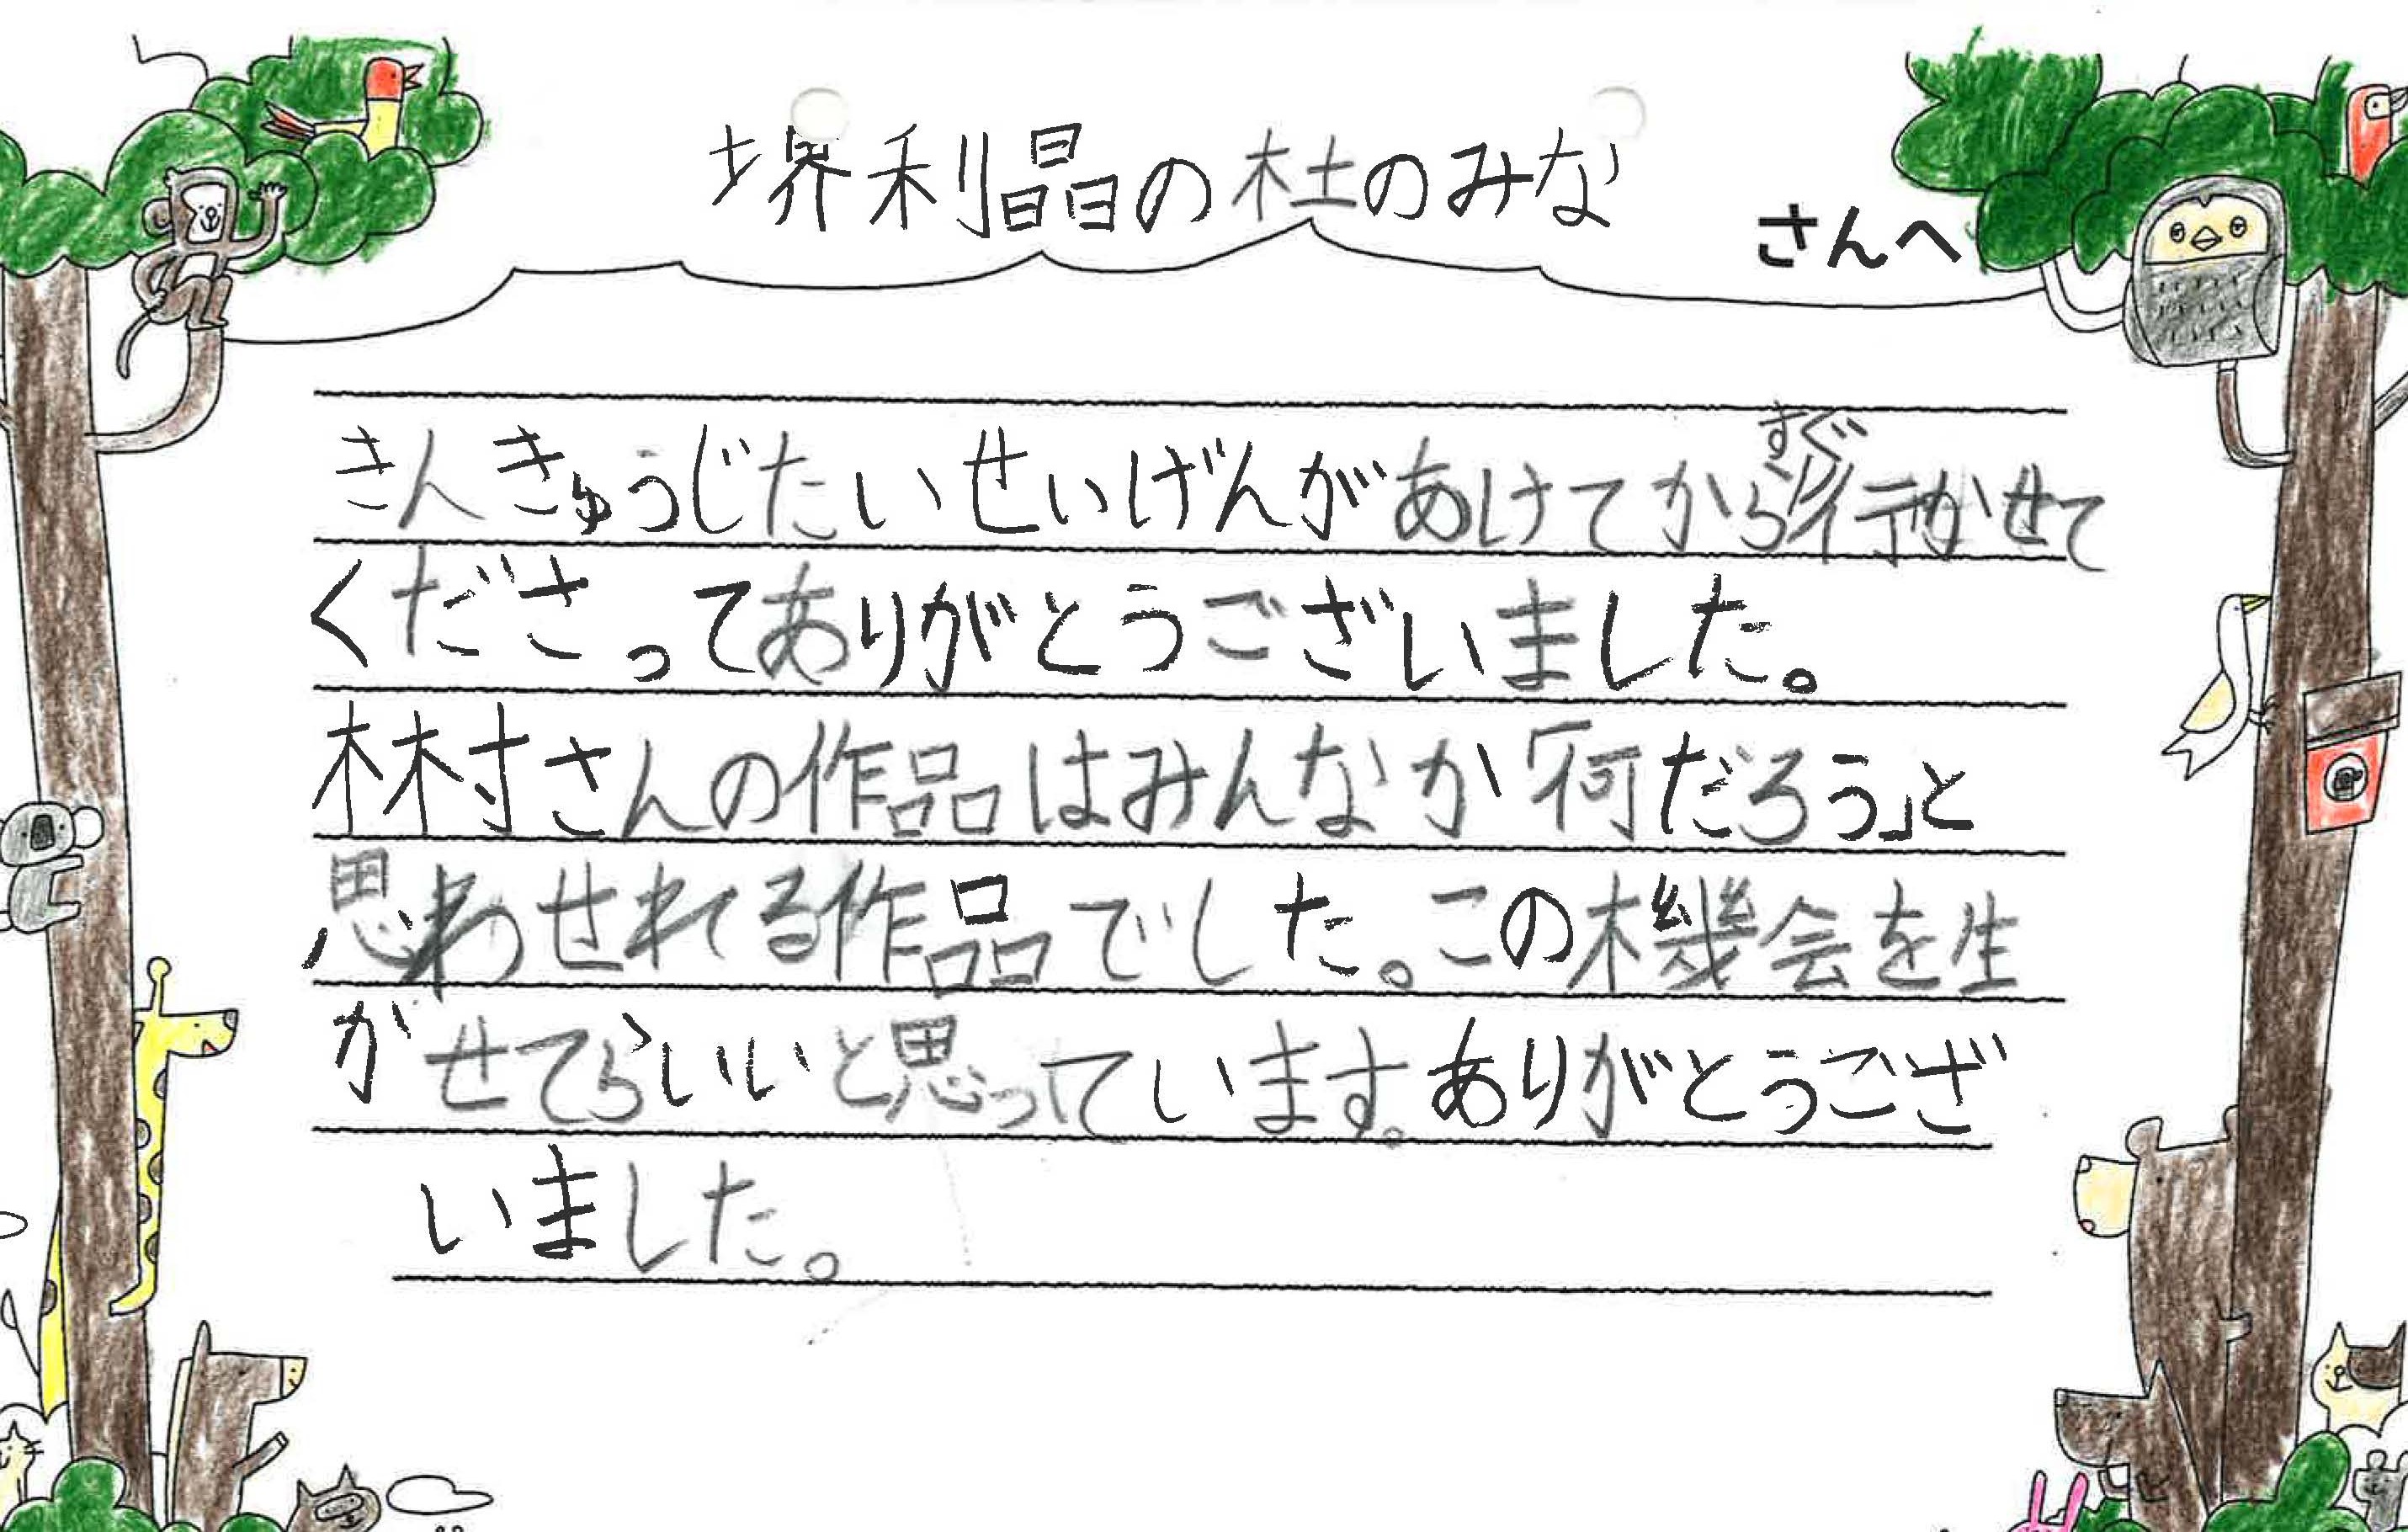 堺利晶の杜のみな さんへ
きんきゅうじたいせいげんがあけてからすぐ行かせて
くださってありがとうございました。
林村さんの作品はみんなが「何だろう」と
思わせれる作品でした。この機会を生
がせてらいいと思っています。ありがとうござ
いました。